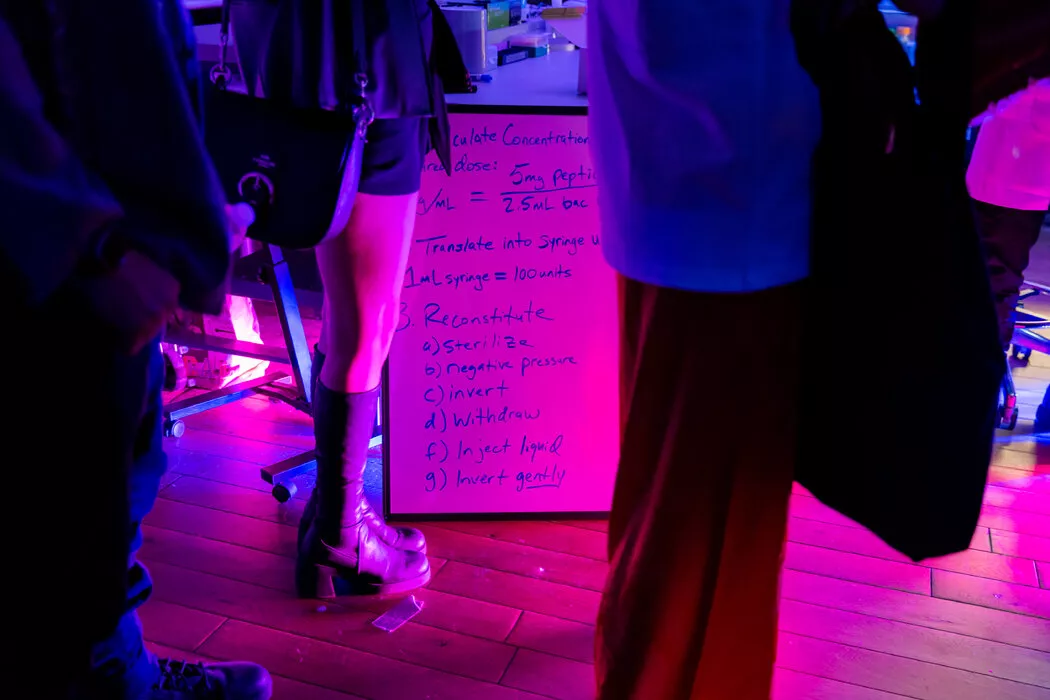 culate Concentration
dose:
5mg pepti
g/mL =
2.5mL bac
Translate into Syringe u
1mL syringe = 100units
3. Reconstitute
a) Sterilize
b) negative pressure
c) invert
d) Withdraw
f) Inject liquid
g) Invert gently